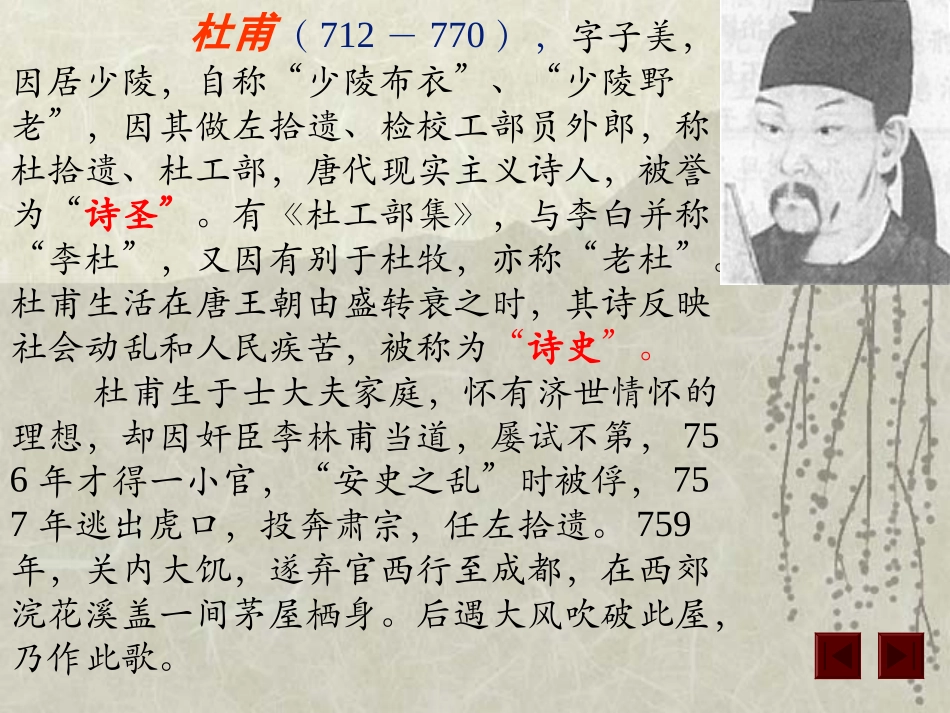 杜甫（712－770），字子美，
因居少陵，自称“少陵布衣”、“少陵野
老”，因其做左拾遗、检校工部员外郎，称
杜拾遗、杜工部，唐代现实主义诗人，被誉
为“诗圣”。有《杜工部集》，与李白并称
“李杜”，又因有别于杜牧，亦称“老杜”。
杜甫生活在唐王朝由盛转衰之时，其诗反映
社会动乱和人民疾苦，被称为“诗史”。
杜甫生于士大夫家庭，怀有济世情怀的
理想，却因奸臣李林甫当道，屡试不第，75
6年才得一小官，“安史之乱”时被俘，75
7年逃出虎口，投奔肃宗，任左拾遗。759
年，关内大饥，遂弃官西行至成都，在西郊
浣花溪盖一间茅屋栖身。后遇大风吹破此屋，
乃作此歌。